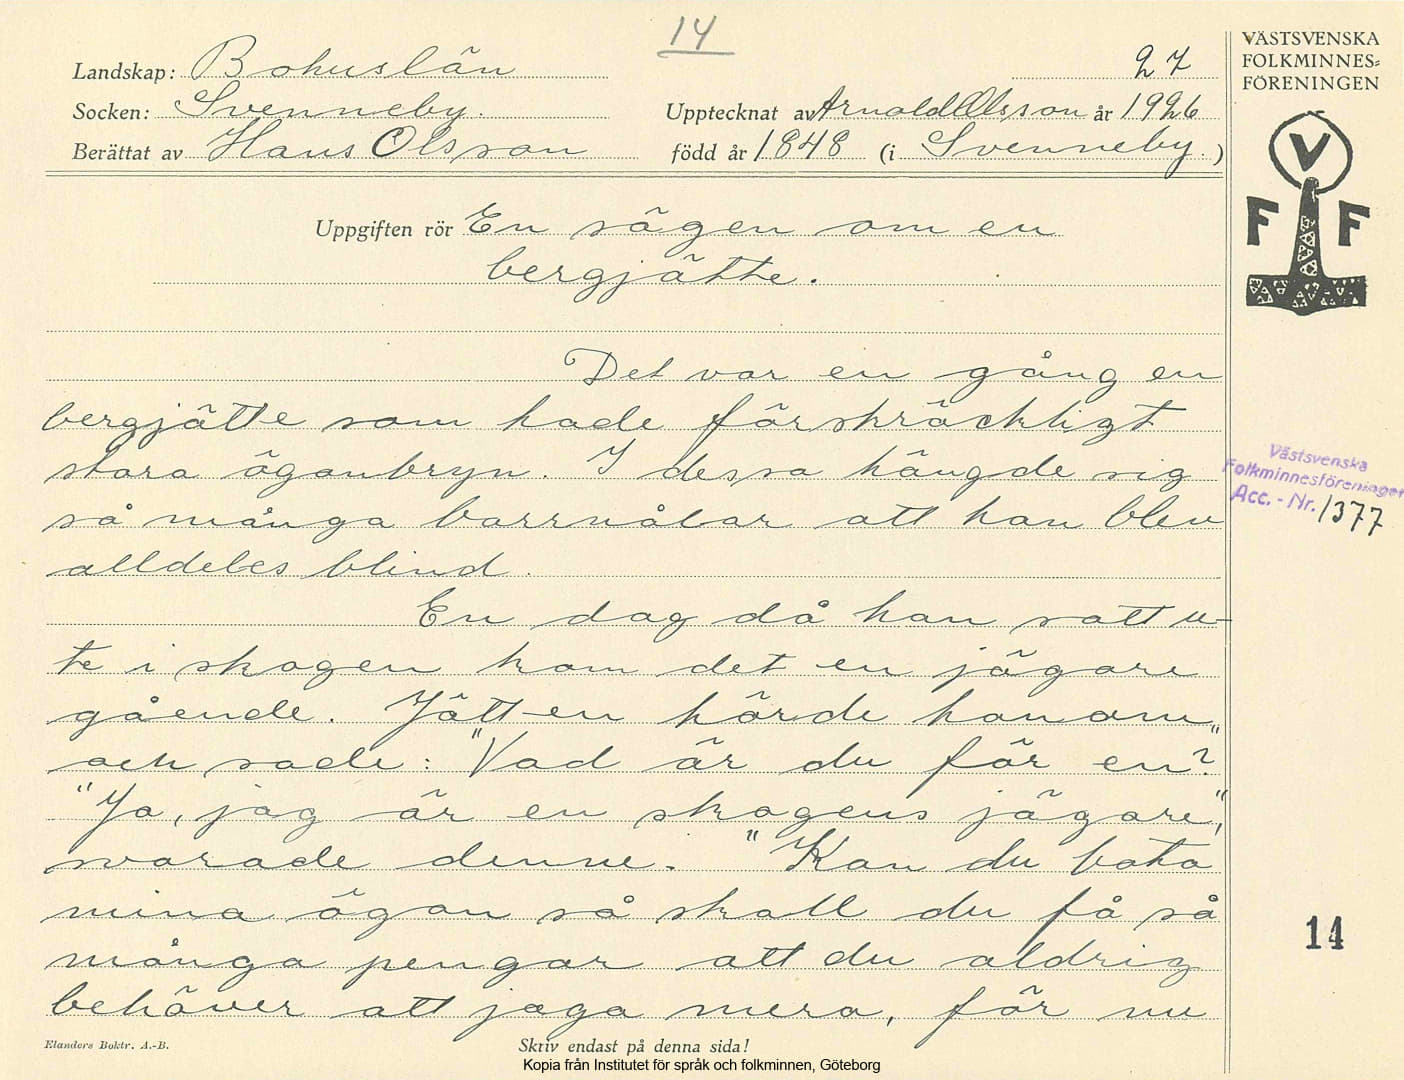 14
27
Landskap: Bohuslän
Socken: Svenneby.
Upptecknat av Arnold Olsson år 1926
Berättat av Hans Olsson
född år 1848 (i Svenneby.)
Uppgiften rör En sägen om en
bergjätte.
Det var en gång en
bergjätte som hade förskräckligt
stora ögonbryn. I dessa hängde sig
så många barrnålar att han blev
alldeles blind.
En dag då han satt u-
te i skogen kom det en jägare
gående. Jätten hörde honom
och sade: "Vad är du för en?"
"Ja, jag är en skogens jägare",
svarade denne. "Kan du bota
mina ögon så skall du få så
många pengar att du aldrig
behöver att jaga mera, för nu
Elanders Boktr. A.-B.
Skriv endast på denna sida!
Kopia från Institutet för språk och folkminnen, Göteborg
VÄSTSVENSKA
FOLKMINNES=
FÖRENINGEN
V
F F
Västsvenska
Folkminnesföreningen
Acc. - Nr. 1377
14